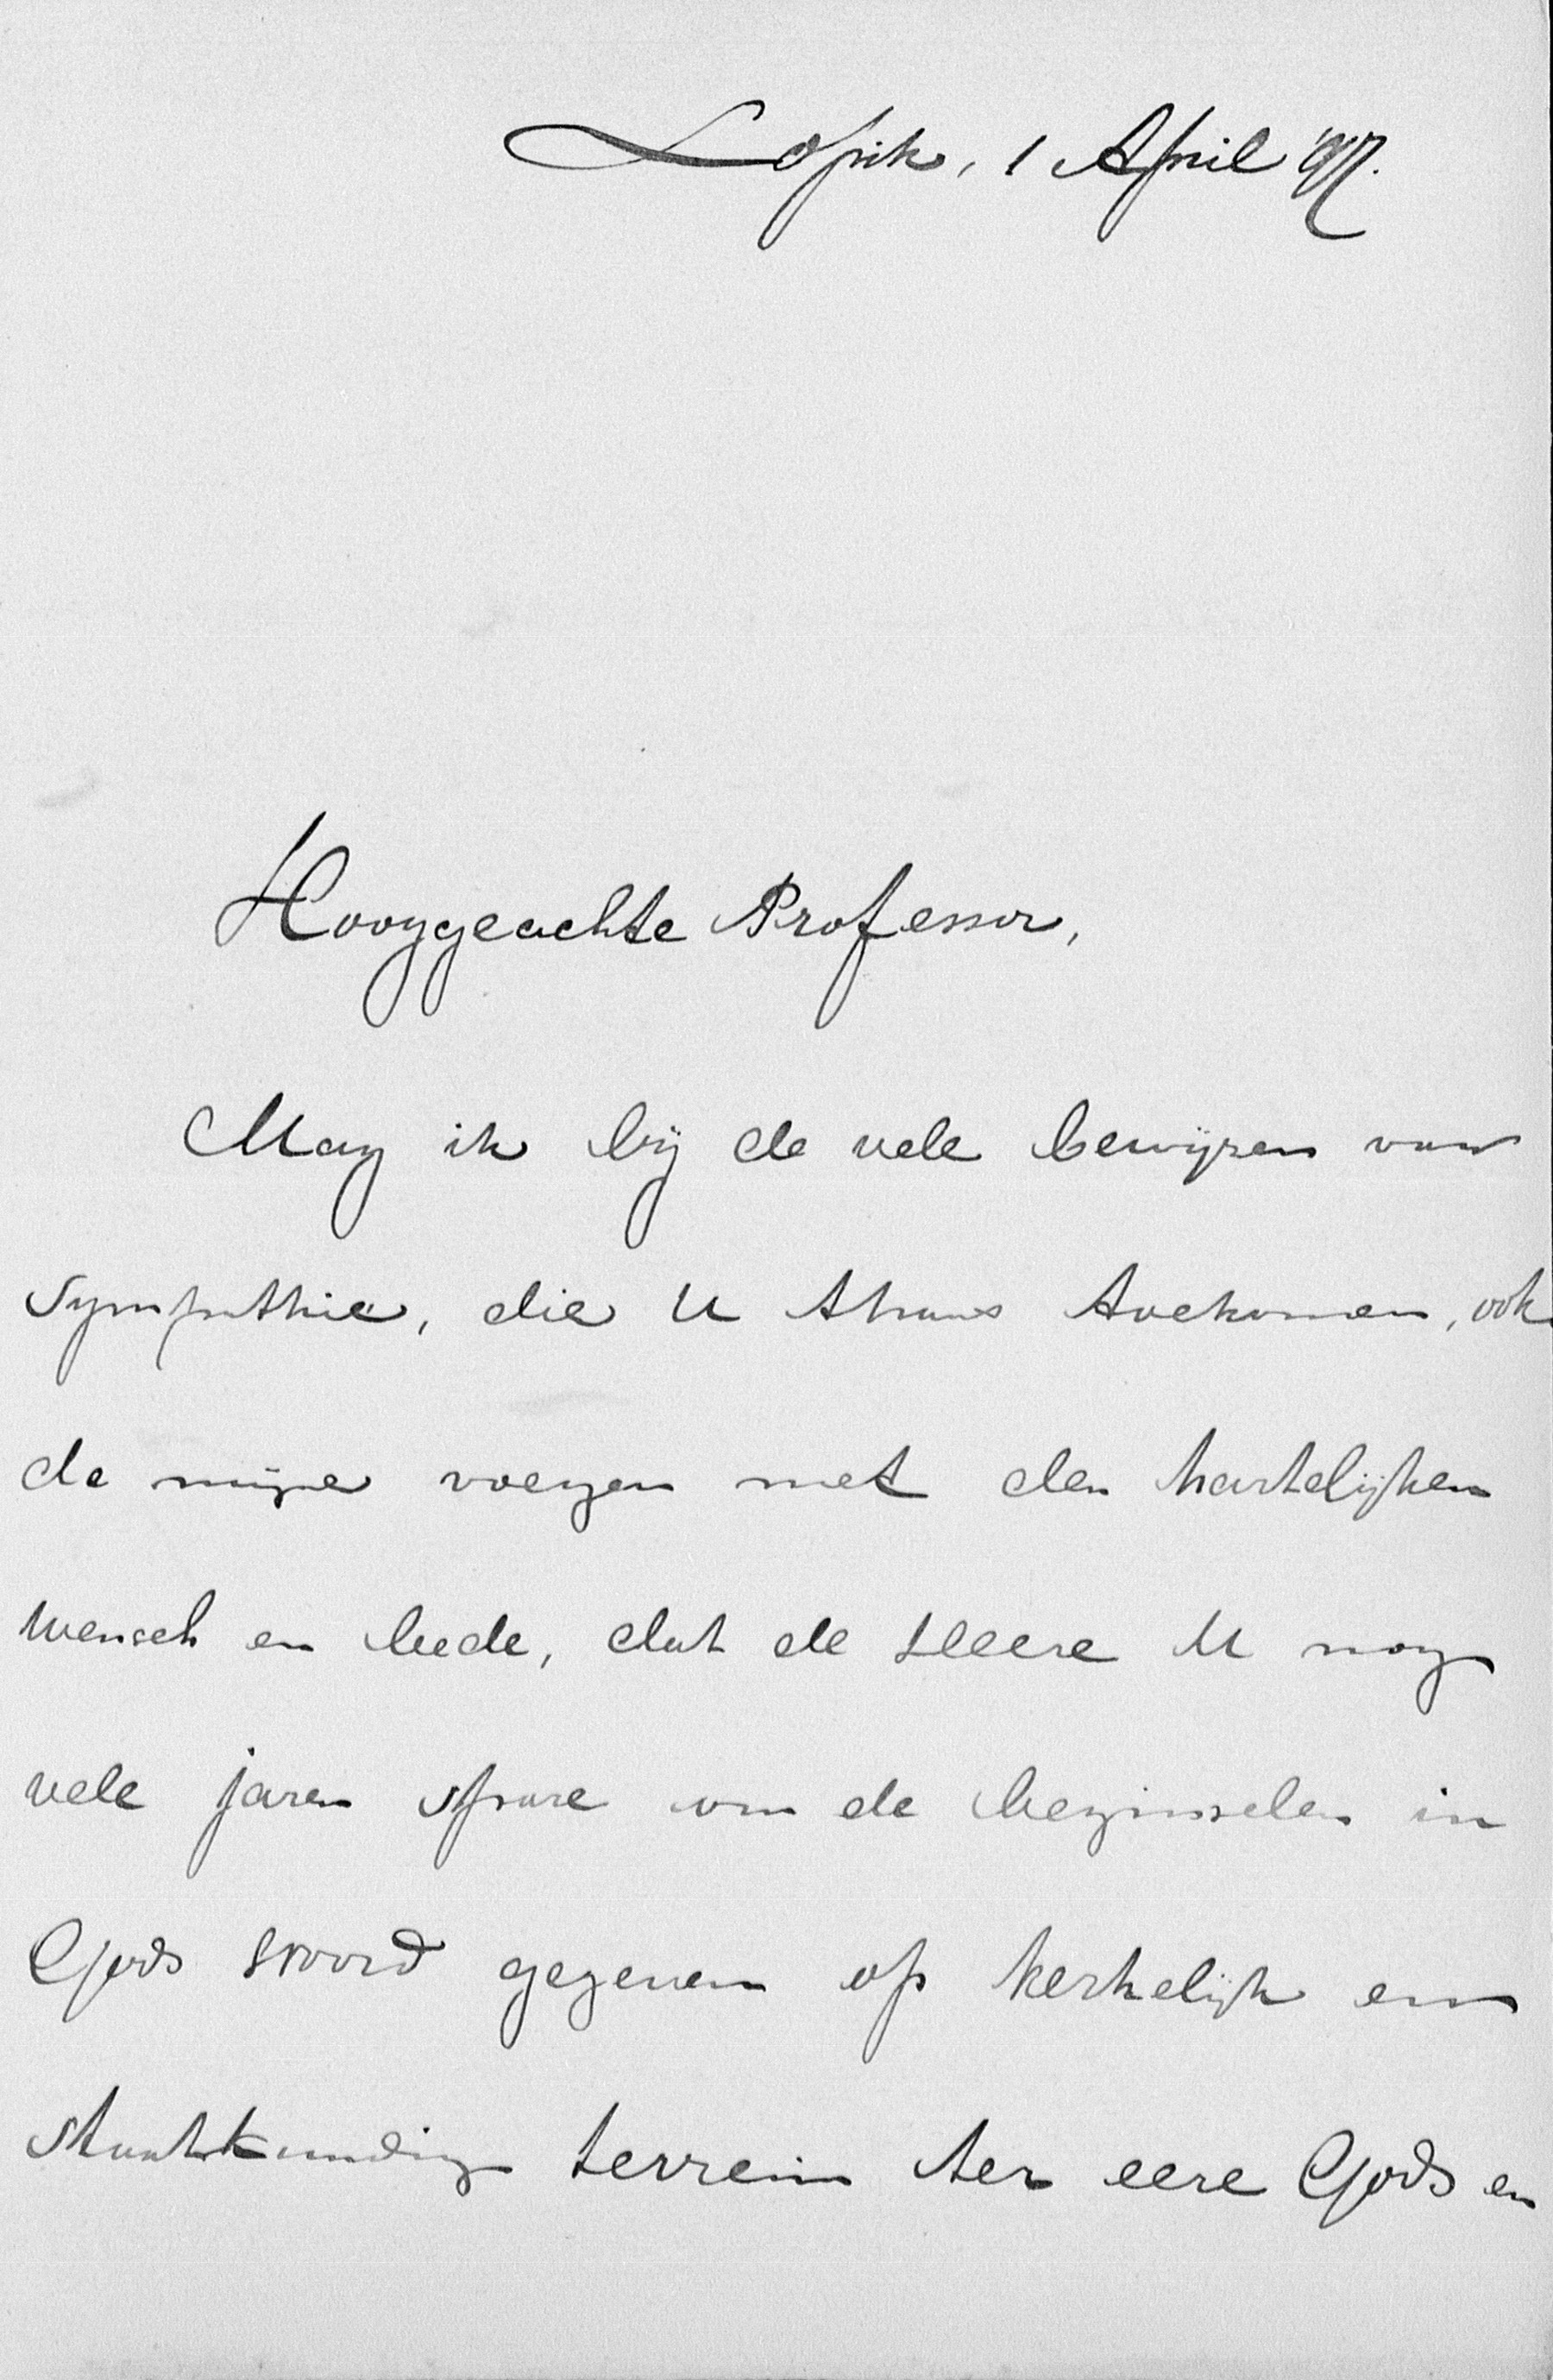 Lopik, 1 April '97.
Hooggeachte Professor,
Mag ik bij de vele bewijzen van
sympathie, die U thans toekomen, ook
de mijne voegen met den hartelijken
wensch en bede, dat de Heere U nog
vele jaren spare om de beginselen in
Gods woord gegeven op kerkelijk en
staatkundig terrein ter eere Gods en